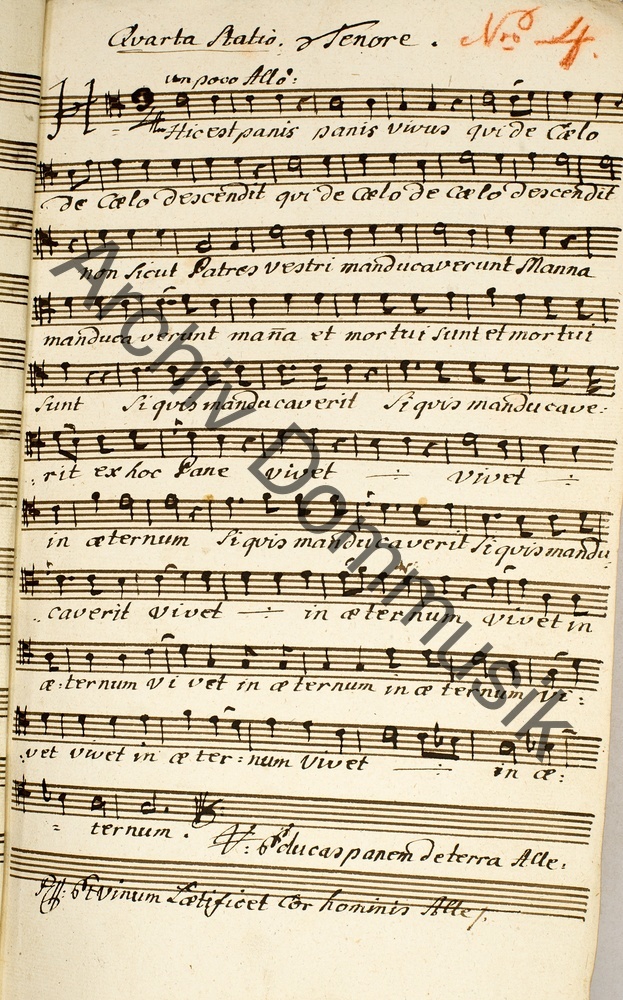 Qvarta Statio. Tenore. Nro 4.
un poco Allo:
Hic est panis panis vivus qvi de Cælo
de Cælo descendit qvi de Cælo de Cælo descendit
non sicut Patres vestri manducaverunt Manna
manducaverunt mana et mortui sunt et mortui
sunt Si qvis manducaverit Si qvis manducave:
:rit ex hoc Pane vivet vivet
in æternum Si qvis manducaverit Si qvis mandu
:caverit vivet in æternum vivet in
æ:ternum vivet in æternum in æternum vi:
:vet vivet in æter:num vivet in æ:
= ternum.
V: Educas panem de terra Alle:
R: Et vinum Lætificet Cor hominis Alle
Archiv Dommusik